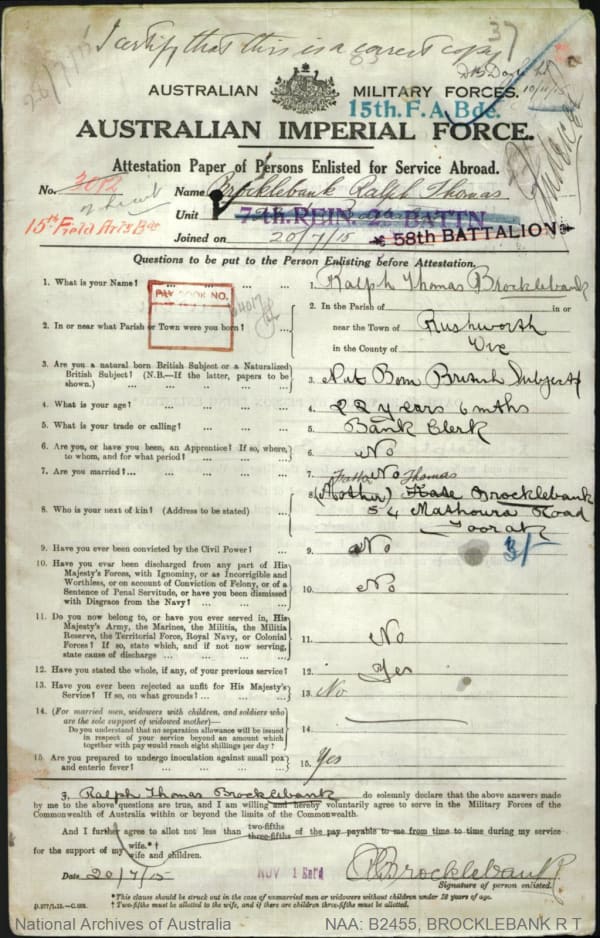 I certify that this is a correct copy
28/7/15
AUSTRALIAN MILITARY FORCES.
15th. F. A. Bde.
AUSTRALIAN IMPERIAL FORCE.
Attestation Paper of Persons Enlisted for Service Abroad.
No. 3012 Name Brocklebank Ralph Thomas
15th Field Arty Bde Unit 7th. REIN. 2 BATTN
Joined on 20/7/15 58th BATTALION
Questions to be put to the Person Enlisting before Attestation.
1. What is your Name? ... 1. Ralph Thomas Brocklebank
PAY BOOK NO.
2. In or near what Parish or Town were you born? ... 2. In the Parish of in or
near the Town of Rushworth
in the County of Vic
3. Are you a natural born British Subject or a Naturalized British Subject? (N.B.—If the latter, papers to be shown.) ... 3. Nat Born British Subject
4. What is your age? ... 4. 22 years 6 mths
5. What is your trade or calling? ... 5. Bank Clerk
6. Are you, or have you been, an Apprentice? If so, where, to whom, and for what period? ... 6. No
7. Are you married? ... 7. No
Father Thomas
8. Who is your next of kin? (Address to be stated) ... 8. (Mother) Kate Brocklebank
54 Mathoura Road
Toorak
9. Have you ever been convicted by the Civil Power? ... 9. No
3/-
10. Have you ever been discharged from any part of His Majesty's Forces, with Ignominy, or as Incorrigible and Worthless, or on account of Conviction of Felony, or of a Sentence of Penal Servitude, or have you been dismissed with Disgrace from the Navy? ... 10. No
11. Do you now belong to, or have you ever served in, His Majesty's Army, the Marines, the Militia, the Militia Reserve, the Territorial Force, Royal Navy, or Colonial Forces? If so, state which, and if not now serving, state cause of discharge ... 11. No
12. Have you stated the whole, if any, of your previous service? 12. Yes
13. Have you ever been rejected as unfit for His Majesty's Service? If so, on what grounds? ... 13. No
14. (For married men, widowers with children, and soldiers who are the sole support of widowed mother)—
Do you understand that no separation allowance will be issued in respect of your service beyond an amount which together with pay would reach eight shillings per day? 14.
15. Are you prepared to undergo inoculation against small pox and enteric fever? ... 15. Yes
I, Ralph Thomas Brocklebank do solemnly declare that the above answers made
by me to the above questions are true, and I am willing and hereby voluntarily agree to serve in the Military Forces of the
Commonwealth of Australia within or beyond the limits of the Commonwealth.
And I further agree to allot not less than two-fifths three-fifths of the pay payable to me from time to time during my service
for the support of my wife.*†
wife and children.
Date 20/7/15 NOV 1 R Brocklebank
Signature of person enlisted.
*This clause should be struck out in the case of unmarried men or widowers without children under 18 years of age.
†Two-fifths must be allotted to the wife, and if there are children three-fifths must be allotted.
National Archives of Australia NAA: B2455, BROCKLEBANK R T